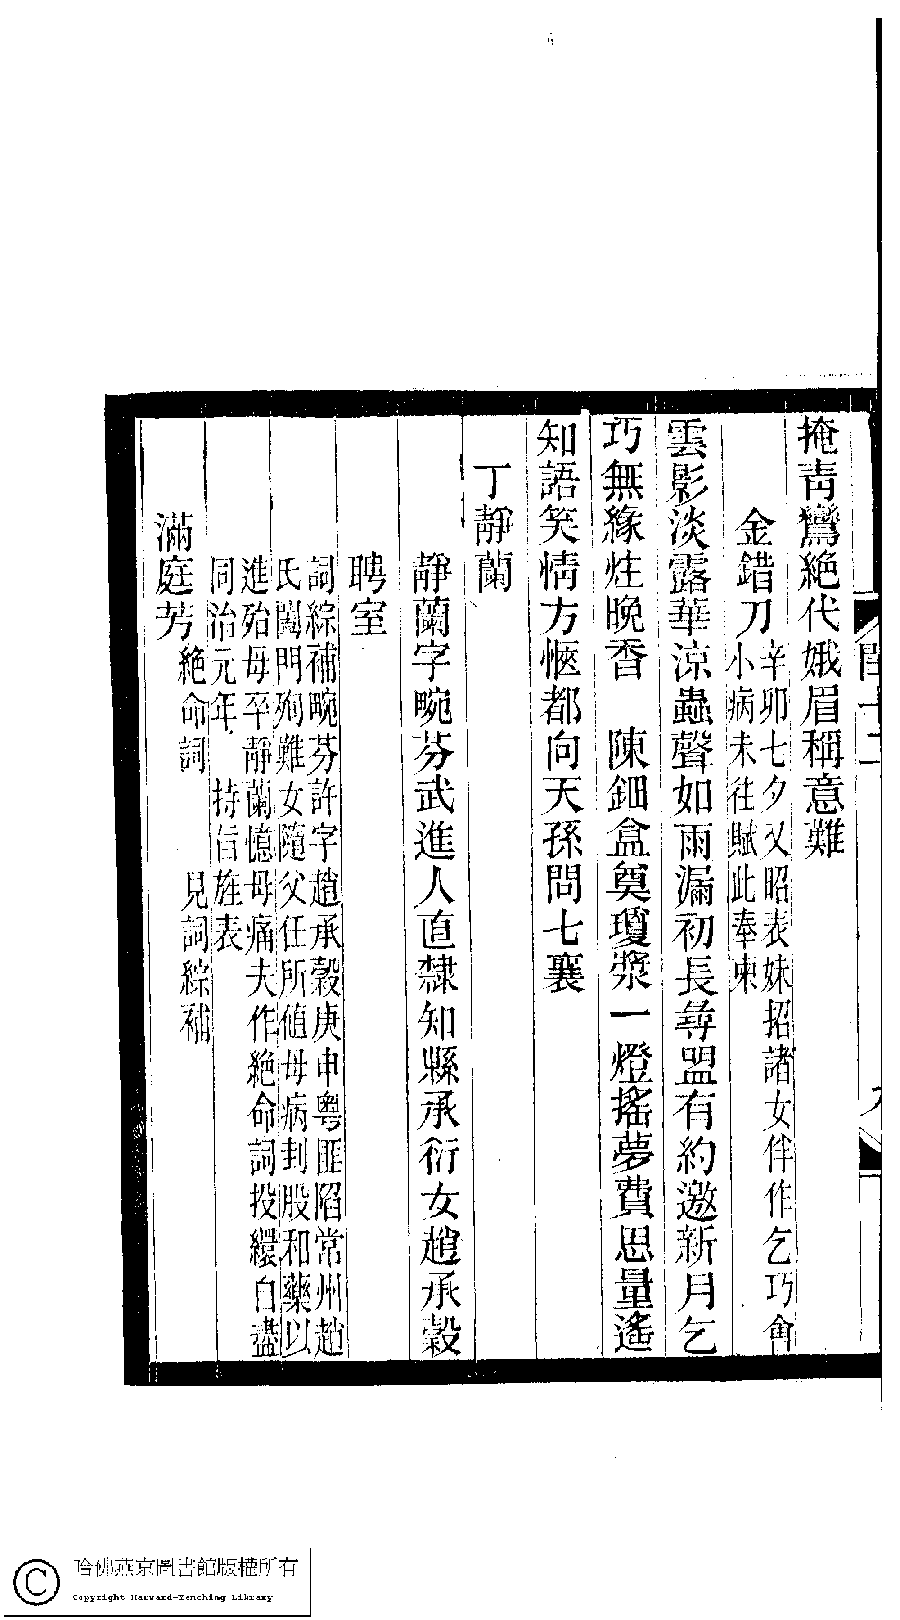 掩靑鸞絶代娥眉稱意難
金錯刀
辛卯七夕又昭表妹招諸女伴作乞巧會
小病未往賦此奉柬
雲影淡露華涼蟲聲如雨漏初長尋盟有約邀新月乞
巧無緣炷晚香　陳鈿盒奠瓊漿一燈搖夢費思量遙
知語笑情方愜都向天孫問七襄
丁靜蘭
靜蘭字畹芬武進人直隸知縣承衍女趙承穀
聘室
詞綜補畹芬許字趙承穀庚申粵匪陷常州趙
氏闔門殉難女隨父任所値母病刲股和藥以
進殆母卒靜蘭憶母痛夫作絶命詞投繯自盡
同治元年　持旨旌表
滿庭芳
絶命詞　見詞綜補
哈佛燕京圖書館版權所有
Copyright Harvard-Yenching Library